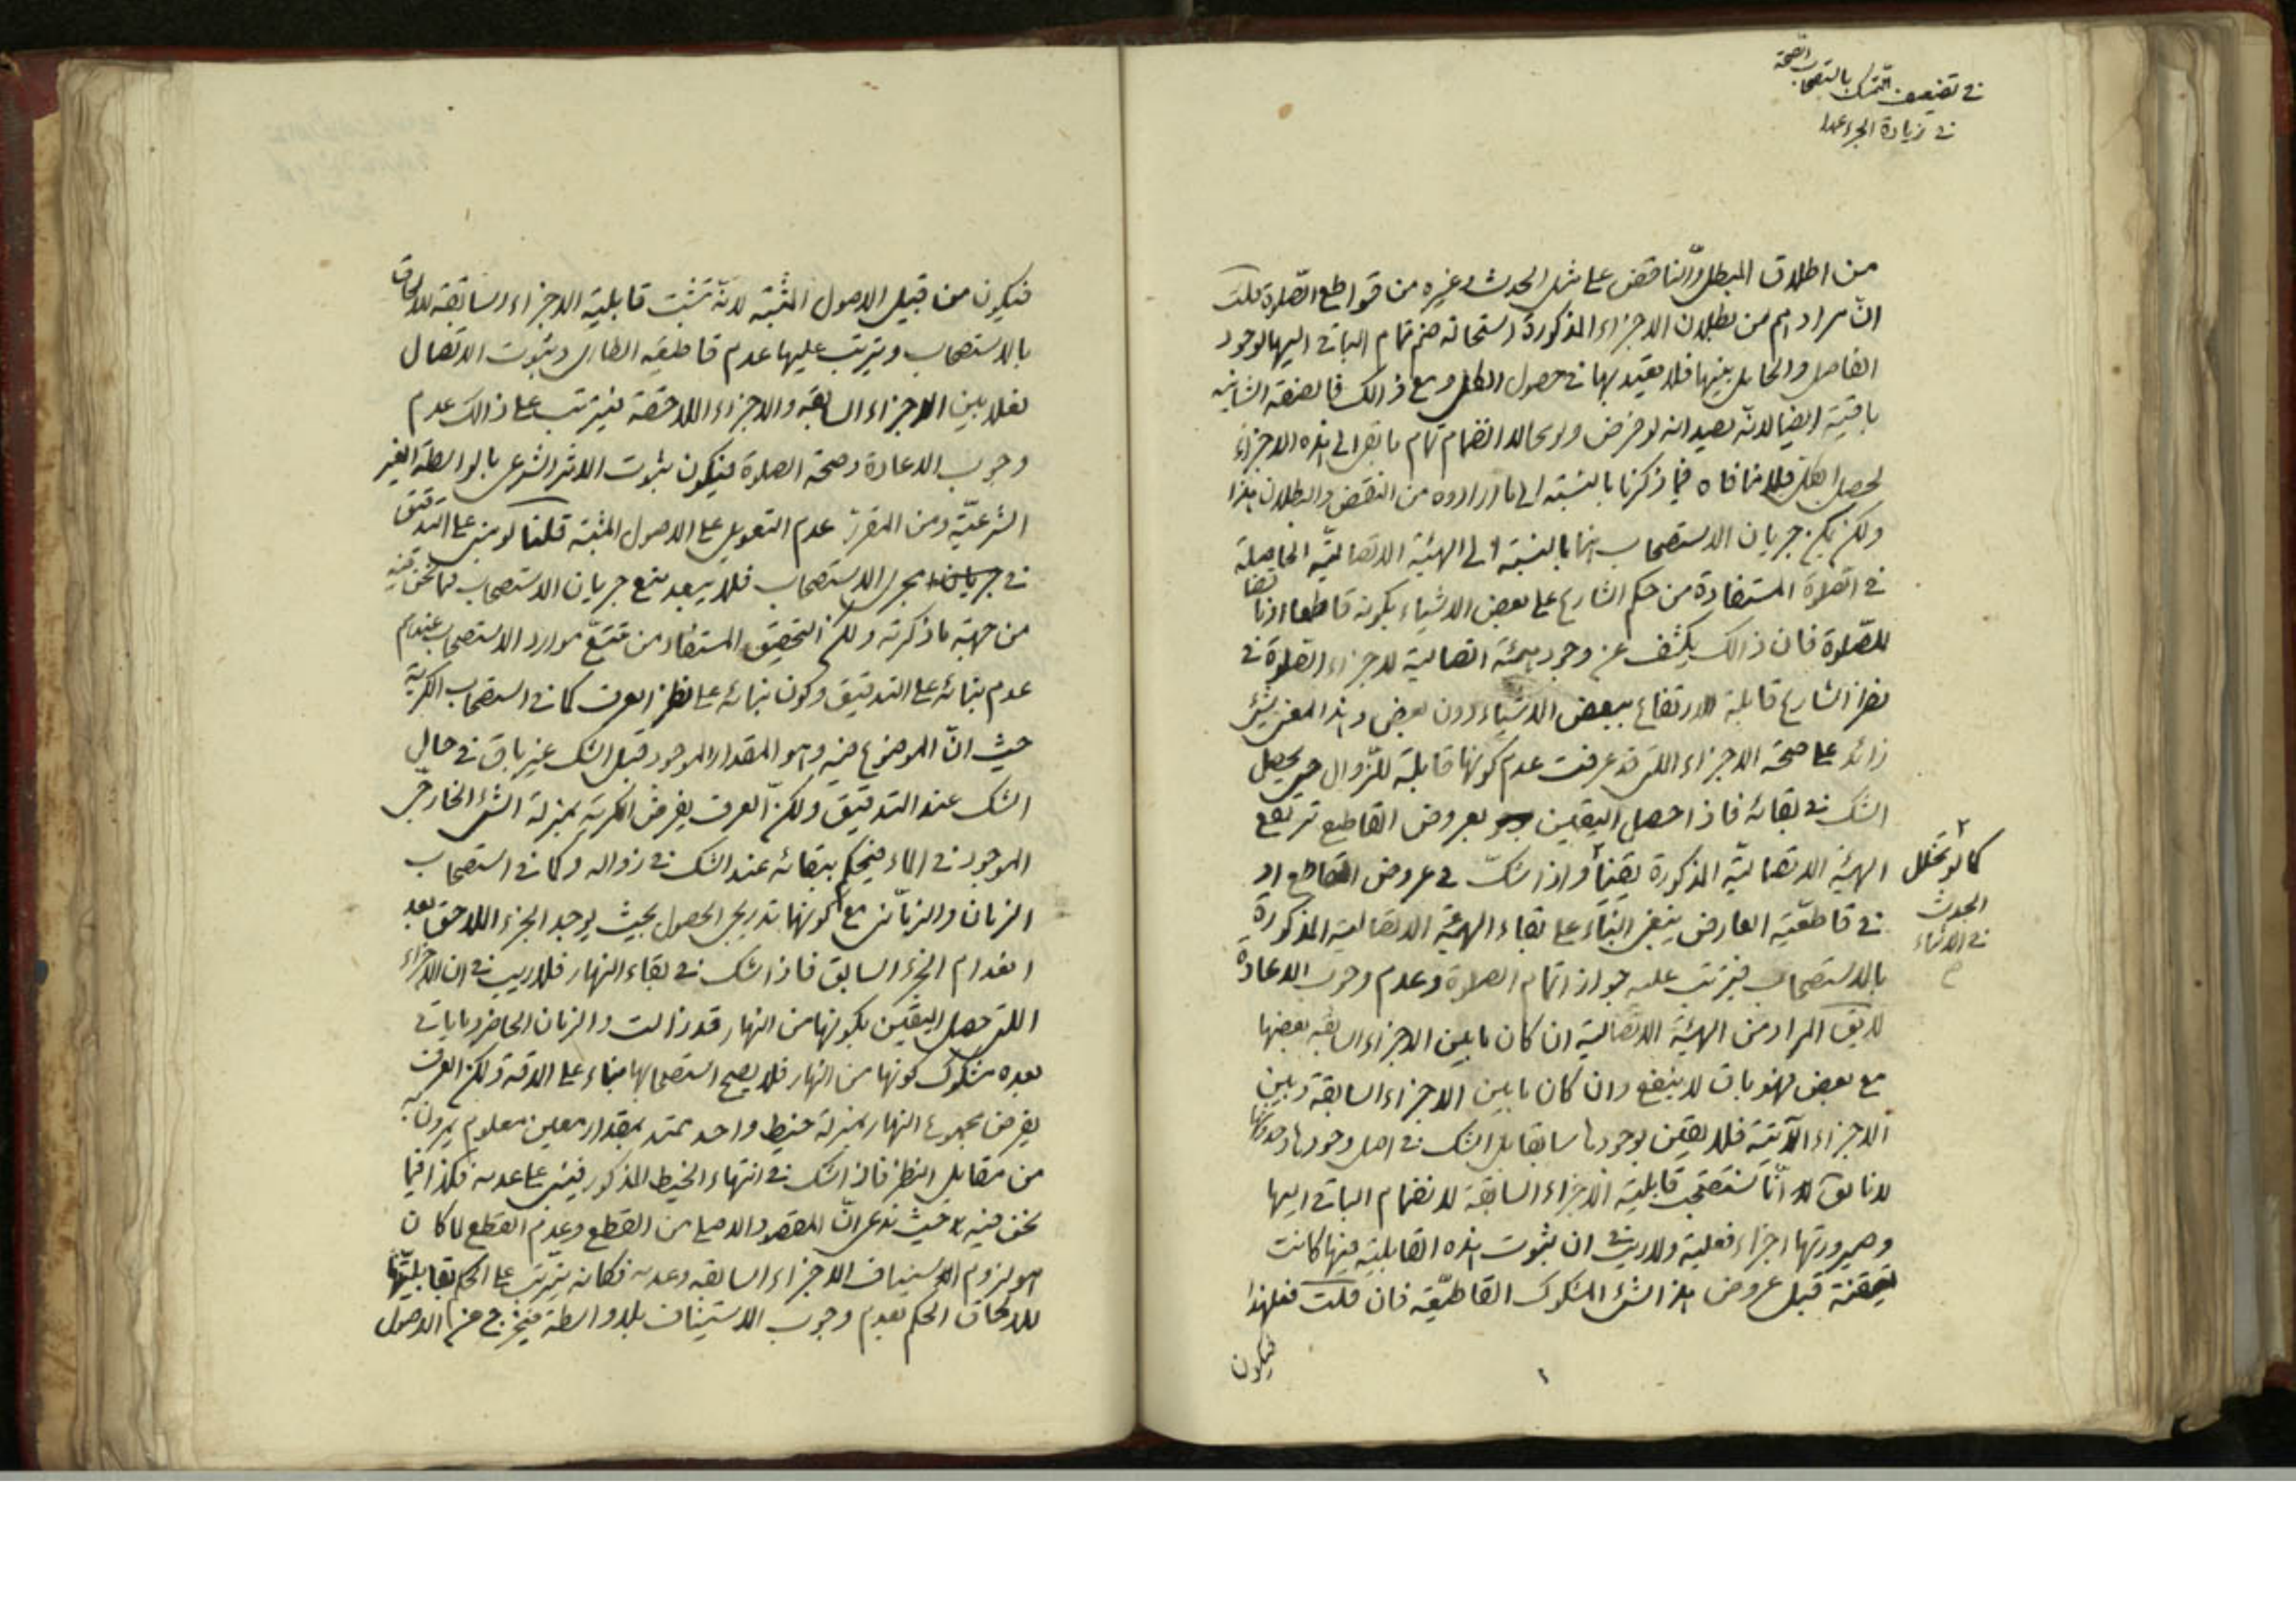 في تضعيف التمسك باستصحاب الصحة
في زيادة الجزء عمدا
من اطلاق المبطل والناقض على مثل الحدث وغيره من قواطع الصلوة قلت
ان مرادهم من بطلان الاجزاء المذكورة استحالة ضم تمام الباقي اليها لوجود
الفاصل والحايل بينها فلا يعتد بها في حصول الكل ومع ذالك فالصفة الشانية
باقية ايضا لانه بصدد انه لو فرض ولو محالا انضمام تمام ما بقى الى هذه الاجزاء
لحصل الكل فلا منافاة فيما ذكرنا بالنسبة الى ما ارادوه من النقض والبطلان هذا
ولكن يمكن جريان الاستصحاب هنا بالنسبة الى الهيئة الاتصالية الحاصلة
في الصلوة المستفادة من حكم الشارع على بعض الاشياء بكونه قاطعا او ناقضا
للصلوة فان ذالك يكشف عن وجود هيئة اتصالية لاجزاء الصلوة في
نظر الشارع قابلة للارتفاع ببعض الاشياء دون بعض وهذا المعنى شيء
زائد على صحة الاجزاء اللتى قد عرفت عدم كونها قابلة للزوال حتى يحصل
الشك في بقائه فاذا حصل اليقين بعروض القاطع ترتفع
الهيئة الاتصالية المذكورة يقينا واذا شك في عروض القاطع او
كما لو تخلل
الحدث
في الاثناء
في قاطعية العارض ينبغى البناء على بقاء الهيئة الاتصالية المذكورة
بالاستصحاب فيترتب عليه جواز اتمام الصلوة وعدم وجوب الاعادة
لا يق المراد من الهيئة الاتصالية ان كان ما بين الاجزاء السابقة بعضها
مع بعض فهو باق لا ينفع وان كان ما بين الاجزاء السابقة وبين
الاجزاء الآتية فلا يقين بوجودها سابقا بل الشك في اصل وجودها وحدوثها
لانا نقول انا نستصحب قابلية الاجزاء السابقة لانضمام الباقي اليها
وصيرورتها اجزاء فعلية ولا ريب في ان ثبوت هذه القابلية فيها كانت
متيقنة قبل عروض هذا الشيء المشكوك القاطعية فان قلت فعلى هذا
فيكون
فيكون من قبيل الاصول المثبتة لانه تثبت قابلية الاجزاء السابقة للالحاق
بالاستصحاب ويترتب عليها عدم قاطعية الطارى وثبوت الاتصال
فعلا بين الاجزاء السابقة والاجزاء اللاحقة فيترتب على ذالك عدم
وجوب الاعادة وصحة الصلوة فيكون ثبوت الاثر الشرعى بالواسطة الغير
الشرعية ومن المقرر عدم التعويل على الاصول المثبتة قلنا لو بنى على التدقيق
في مجرى الاستصحاب فلا يبعد منع جريان الاستصحاب فيما نحن فيه
من جهة ما ذكرته ولكن التحقيق المستفاد من تتبع موارد الاستصحاب عندهم
عدم بنائه على التدقيق وكون بنائه على نظر العرف كما في استصحاب الكرية
حيث ان الموضوع فيه وهو المقدار الموجود قبل الشك غير باق في حال
الشك عند التدقيق ولكن العرف يفرض الكرية بمنزلة الشيء الخارجى
الموجود في الماء فيحكم ببقائه عند الشك في زواله وكما في استصحاب
الزمان والزمانى مع كونهما تدريجى الحصول بحيث يوجد الجزء اللاحق بعد
انعدام الجزء السابق فاذا شك في بقاء النهار فلا ريب في ان الاجزاء
اللتى حصل اليقين بكونها من النهار قد زالت والزمان الحاضر وما ياتى
بعده مشكوك كونها من النهار فلا يصح استصحابها بناء على الدقة ولكن العرف
يفرض مجموع النهار بمنزلة خيط واحد ممتد بمقدار معين معلوم يمرون به
من مقابل النظر فاذا شك في انتهاء الخيط المذكور فيبنى على عدمه فكذا فيما
نحن فيه حيث ندعى ان المقصود الاصلى من القطع وعدم القطع لما كان
هو لزوم استيناف الاجزاء السابقة وعدمه فكانه يترتب على الحكم بقابليتها
للالحاق الحكم بعدم وجوب الاستيناف بلا واسطة فيخرج من الاصول